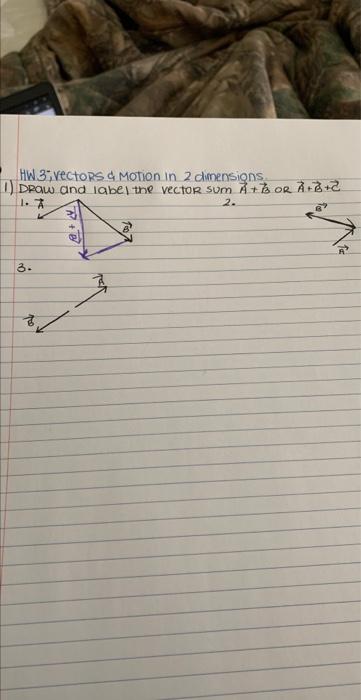 HW 3; vectors & Motion in 2 dimensions.
1) Draw and label the vector sum A⃗ + B⃗ OR A⃗+B⃗+C⃗
1. A⃗ A⃗ + B⃗ B⃗ 2. B⃗
A⃗
3.
A⃗
B⃗